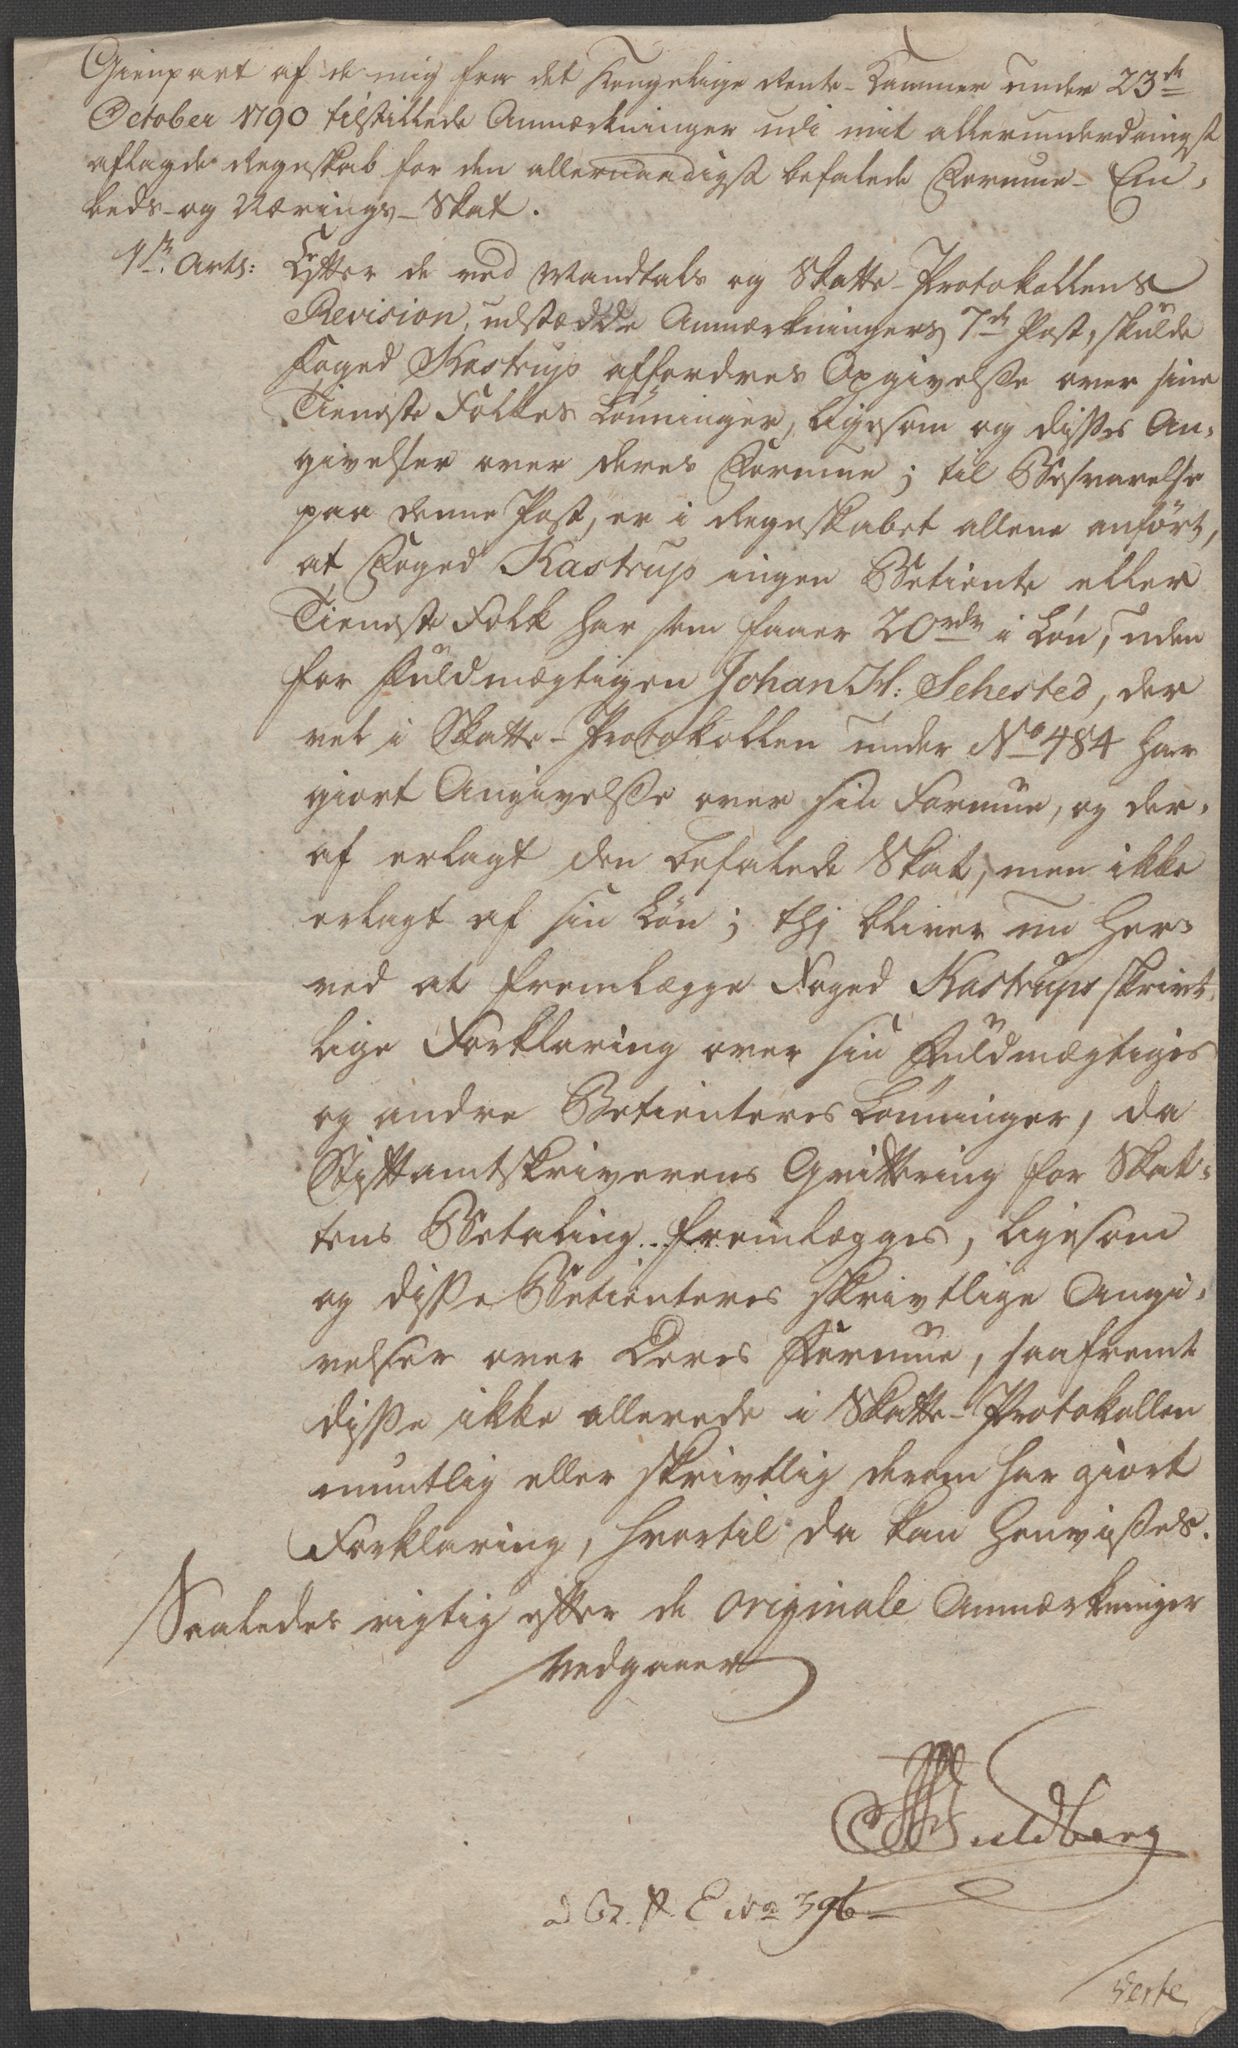 Gienpart af de mig fra det Kongelige Rente-Kammer under 23de
October 1790 tilstillede Anmærkninger udi mit allerunderdanigst
aflagde Regnskab for den allernaadigst befalede Formue- Em-
beds- og Nærings-Skat.
1te Ants: Efter de ved Mandtals og Skatte-Protokollens
Revision, udstædde Anmærkningers 7de Post, skulde
Foged Kastrup affordres Opgivelse over sine
Tieneste Folkes Lønninger, ligesom og disses An-
givelser over deres Formue; til Besvarelse
paa denne Post, er i Regnskabet allene anført,
at Foged Kastrup ingen Betiente eller
Tieneste Folk har som faaer 20 rdr i Løn, uden
for Fuldmægtigen Johan H: Sehested, der
vel i Skatte-Protokollen under No 484 har
giort Angivelse over sin Formue, og der-
af erlagt den befalede Skat, men ikke
erlagt af sin Løn; thj bliver nu her-
ved at fremlægge Foged Kastrups skrivt-
lige Forklaring over sin Fuldmægtiges
og andre Betienteres Lønninger, da
Stiftamtskriverens Qvittering for Skat-
tens Betaling fremlægges, ligesom
og disse Betienteres skrivtlige Angi-
velser over Deres Formue, saafremt
disse ikke allerede i Skatte-Protokollen
mundtlig eller skrivtlig derom har giort
Forklaring, hvortil da kan henvises.
Saaledes rigtig efter de originale Anmærkninger
Vedgaaer
Guldberg
No 396
Verte